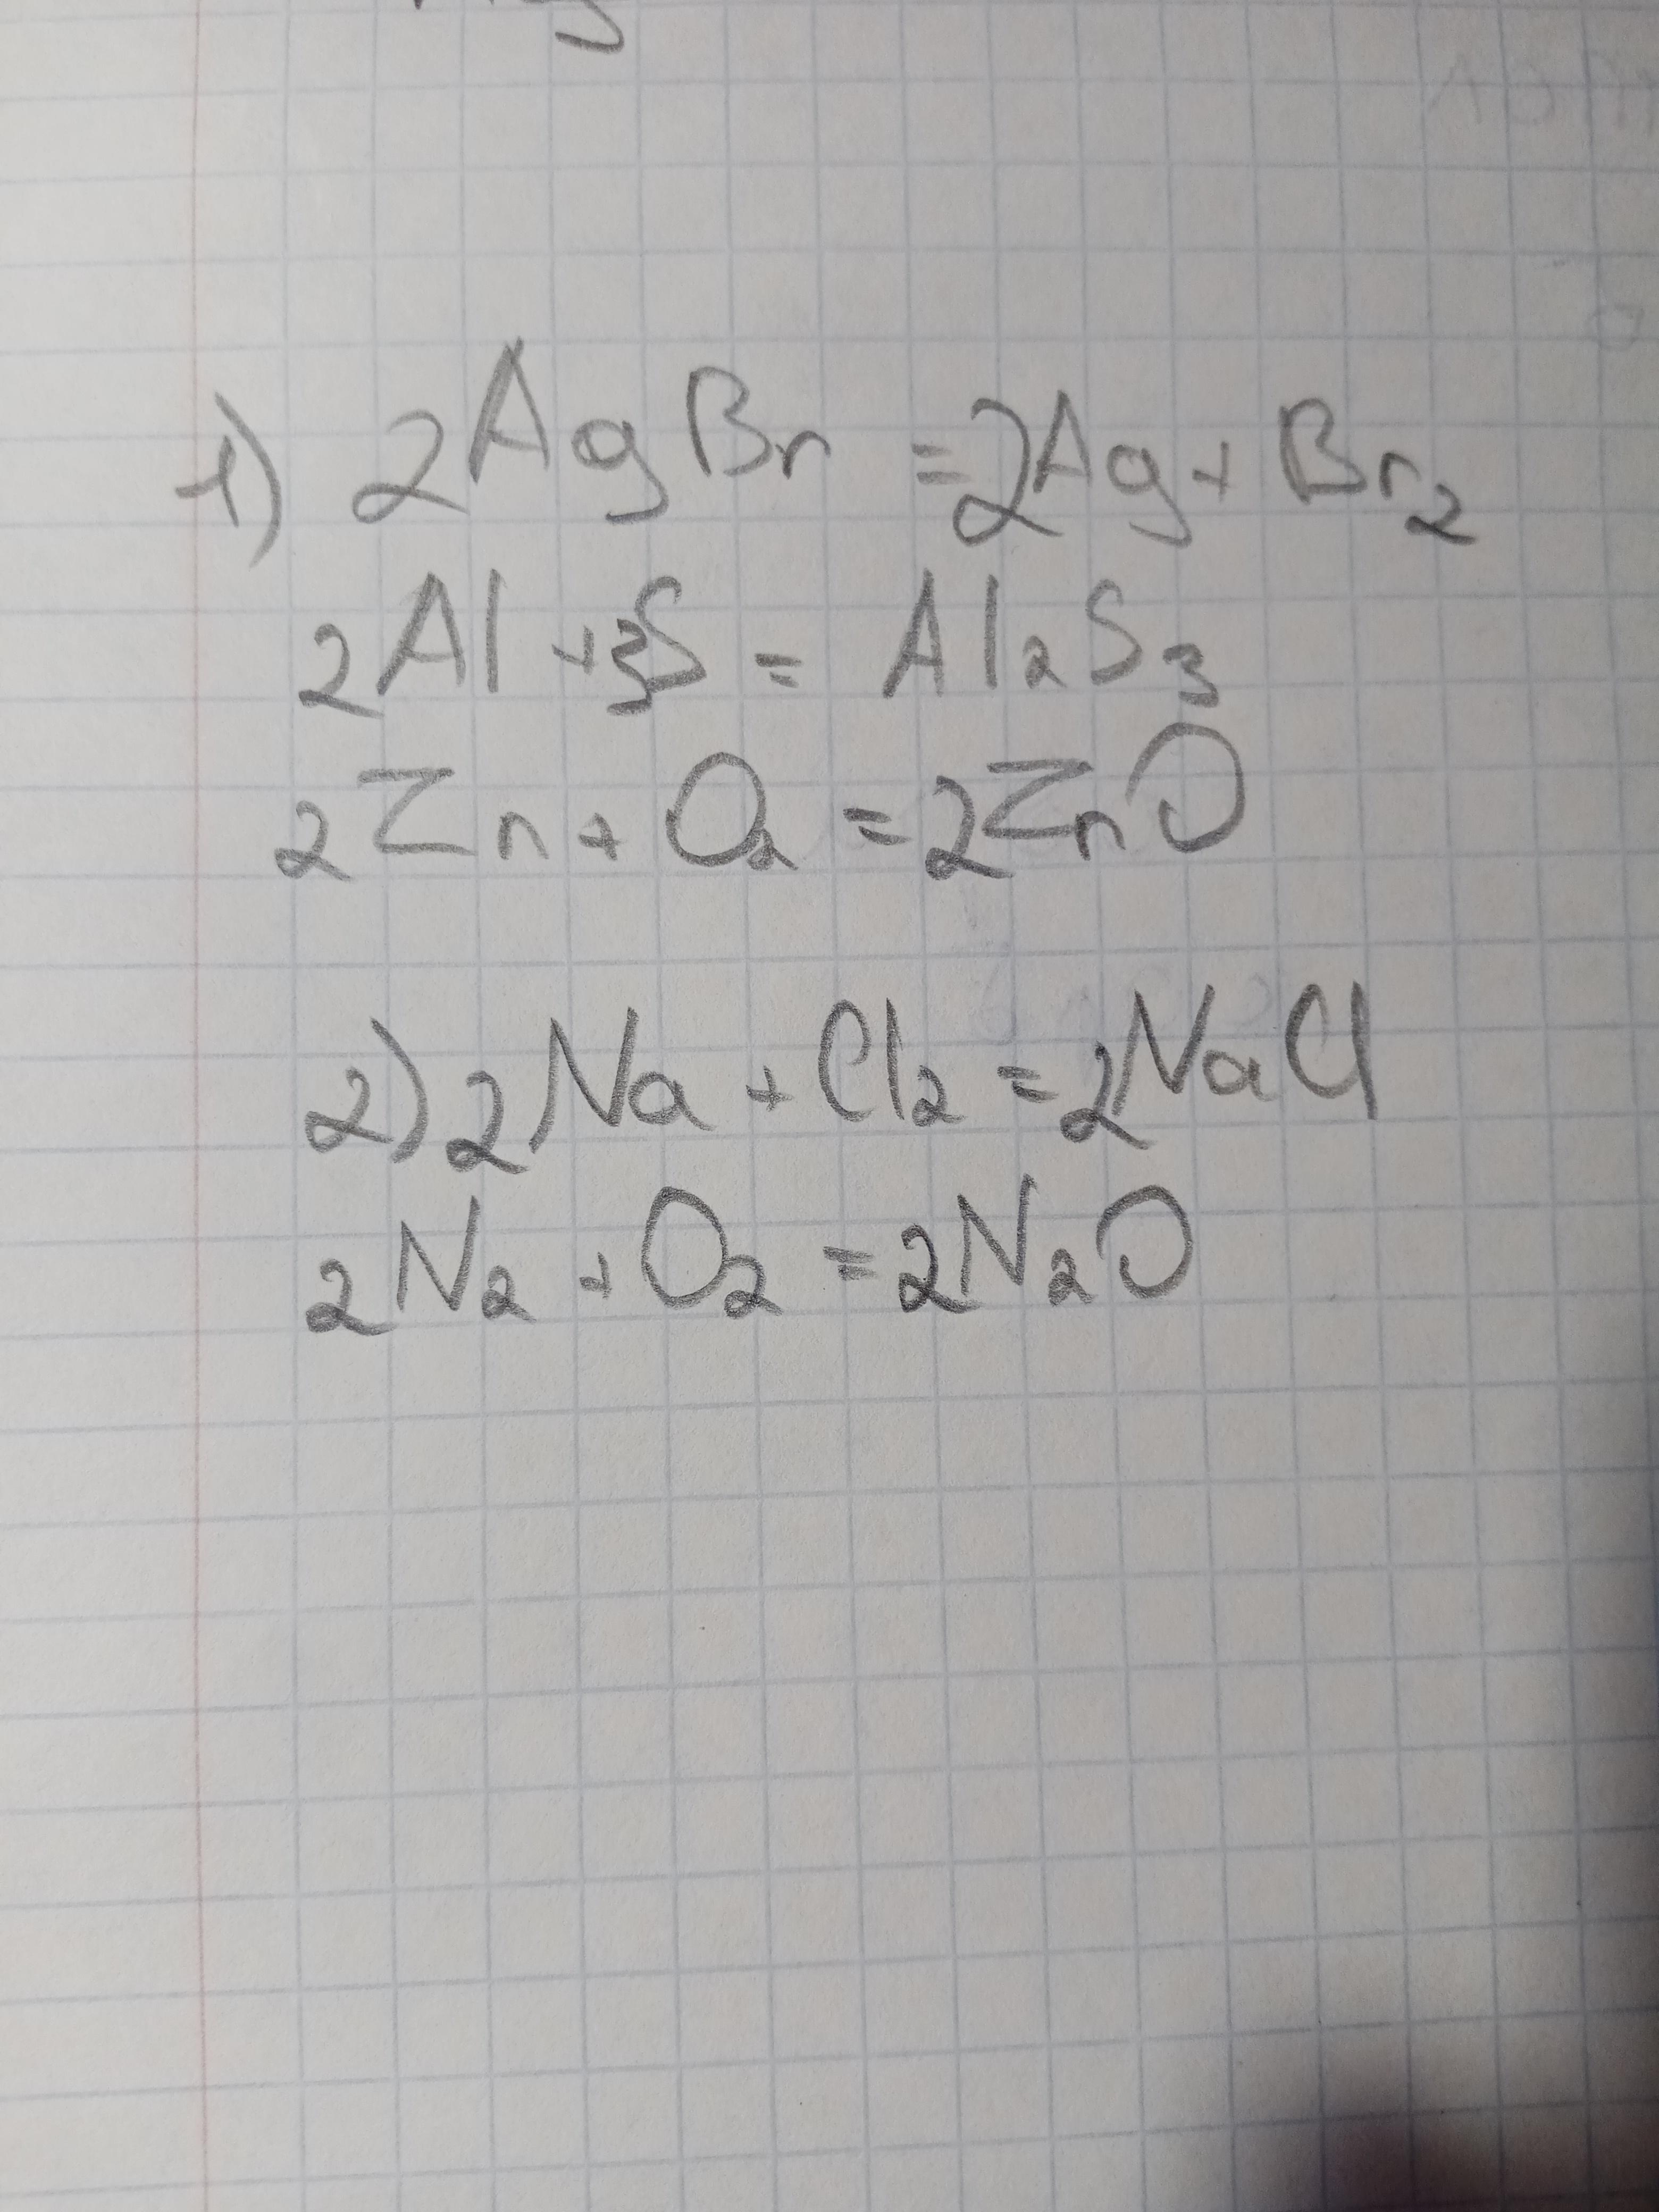 1) 2AgBr = 2Ag + Br₂
2Al + 3S = Al₂S₃
2Zn + O₂ = 2ZnO
2) 2Na + Cl₂ = 2NaCl
2N₂ + O₂ = 2N₂O